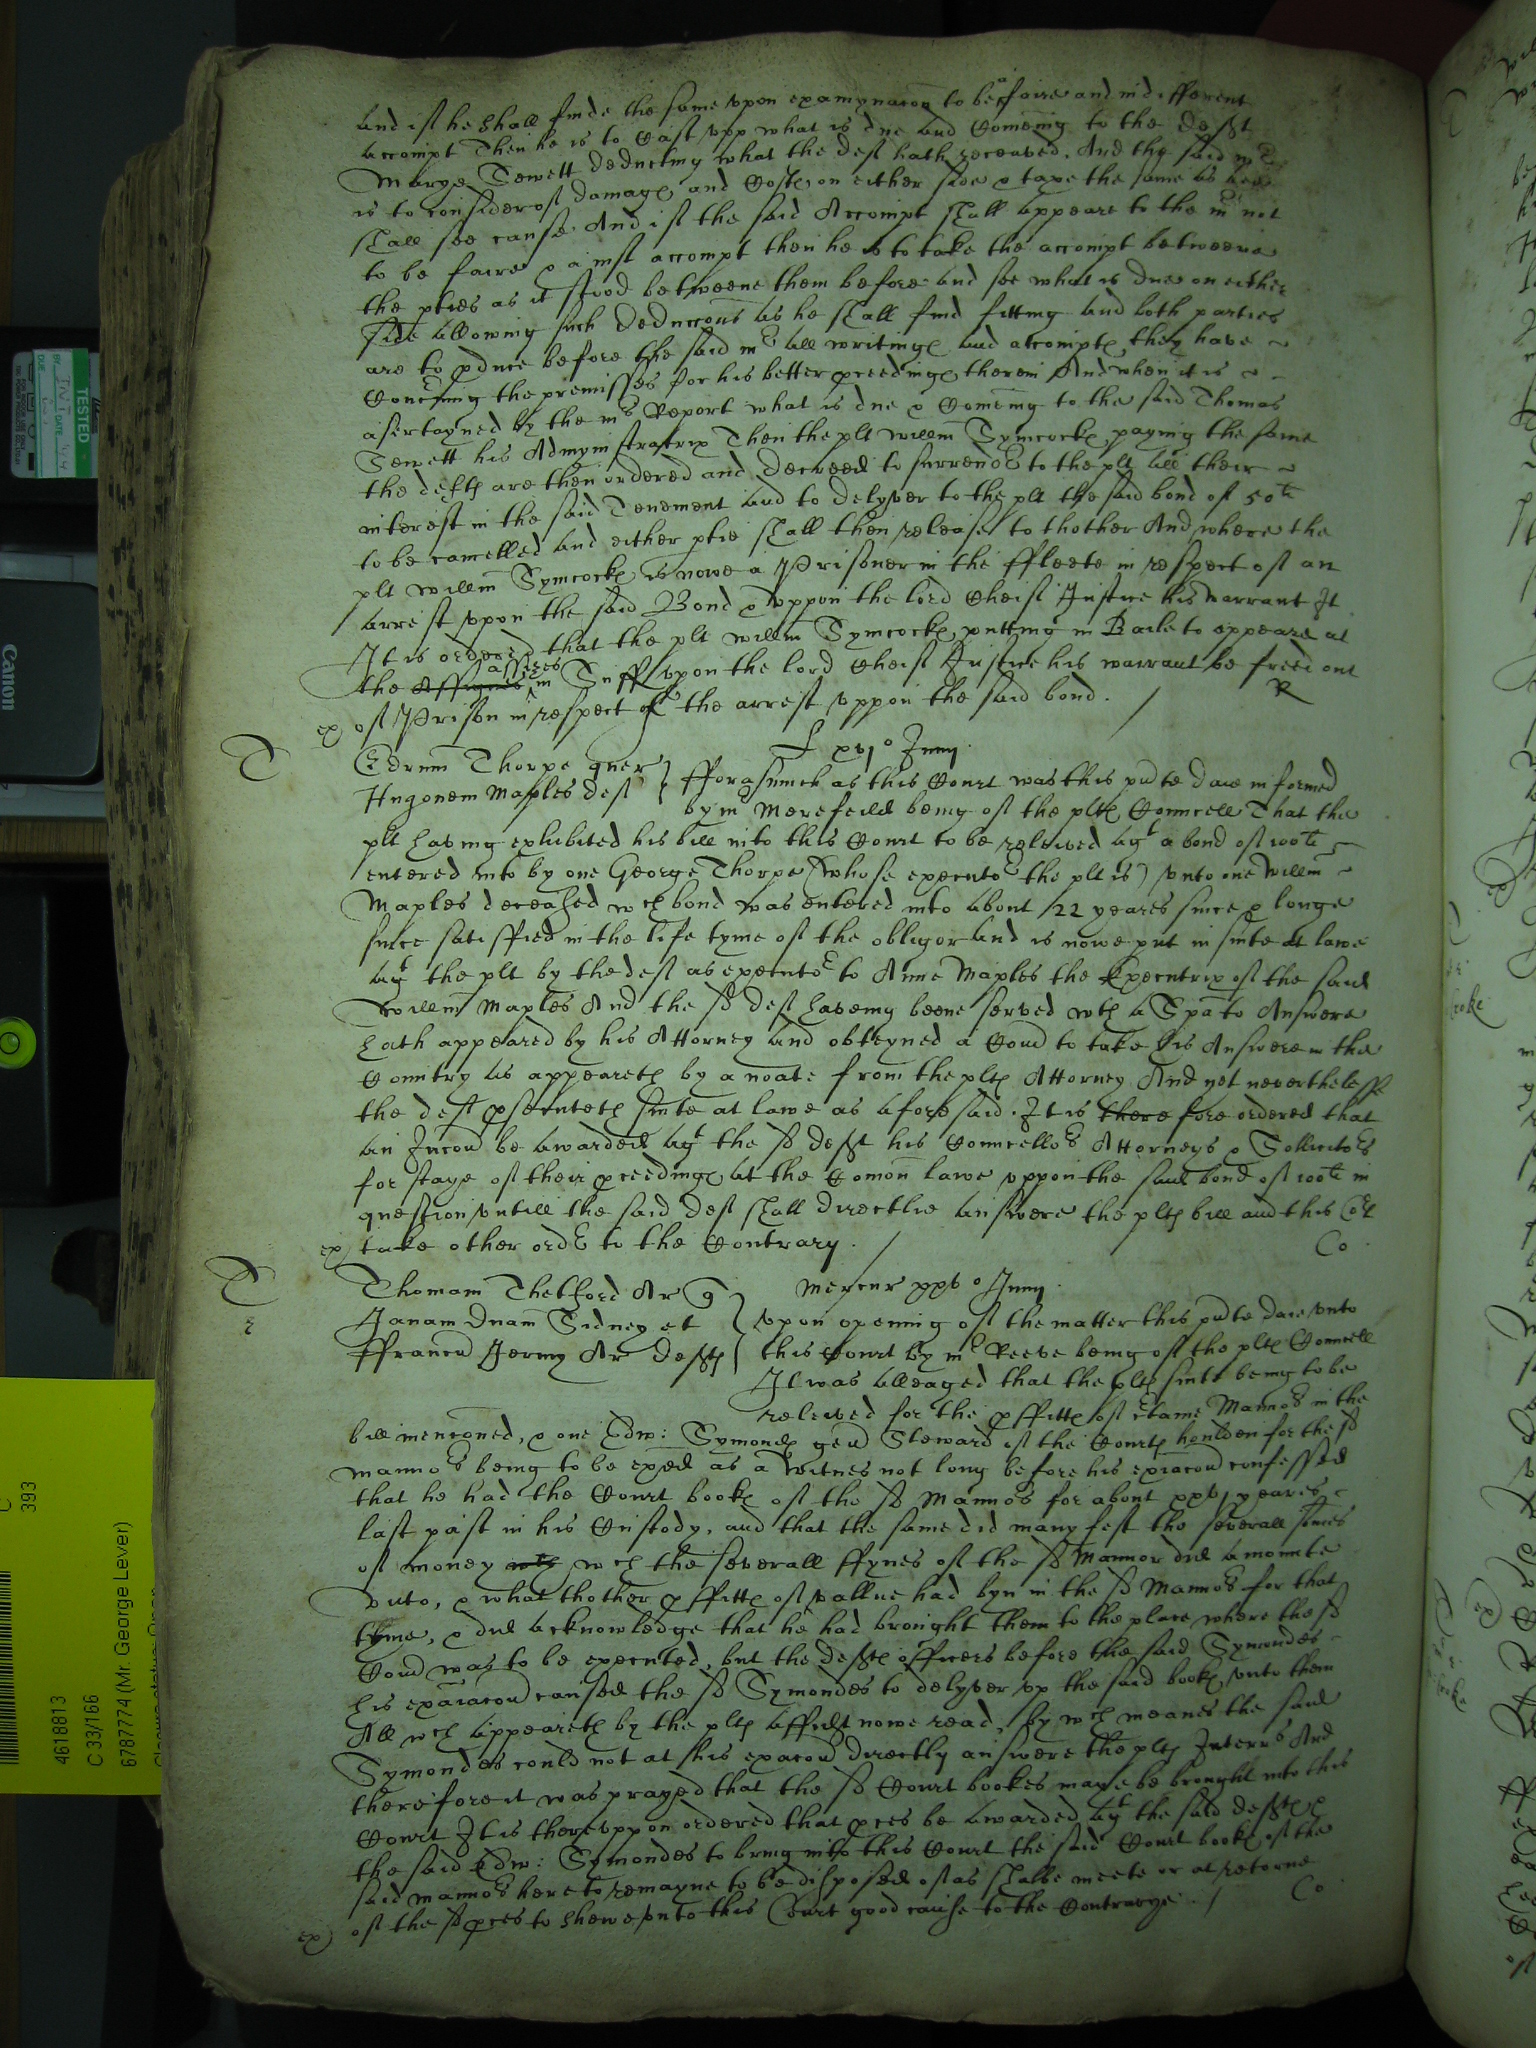 and if he shall finde the same upon examynacon to be a faire and indifferent
accompt Then he is to cast upp what is due and Comeing to the Defft
Marye Jewett deducting what the deft hath receaved. And the said mr
is to consider of damages and Costes on either side & taxe the same as hee
shall see cause And if the said Accompt shall appeare to the mr not
to be faire & a just accompt then he is to take the accompt betweene
the pties as it stood betweene them before and see what is due on either
side allowing such deduccons as he shall find fitting and both parties
are to pduce before the said mr all writinges and accomptes they have
Concerning the premisses for his better pceedinges therein And when it is
asertayned by the mrs Report what is due & Comeing to the said Thomas
Jewett his Admynistratrix Then the plt Willm Symcockes paying the same
the deftes are then ordered and decreed to surrender to the plt all their
interest in the said Tenement and to delyver to the plt the said bond of 50li
to be cancelled and either ptie shall then release to thother And where the
plt Willm Symcockes is nowe a Prisoner in the ffleete in respect of an
arrest upon the said Bond & uppon the lord Cheif Justice his warrant It
It is ordered that the plt Willm Symcockes putting in Baile to appeare at
the assises in Suff upon the lord Cheif Justice his warrant be freed out
of Prison in respect of the arrest uppon the said bond. R
ex
T
xvjo Junij
Edrum Thorpe quer
Hugonem Maples deft
fforasmuch as this Court was this pnte daie informed
by mr Merefeild being of the pltes Councell That the
plt having exhibited his bill into this Court to be releived agt a bond of 100li
entered into by one George Thorpe (whose executor the plt is) unto one Willm
Maples deceased wch bond was entered into about 22 yeares since & longe
since satisffied in the life tyme of the obligor and is nowe put in suite at lawe
agt the plt by the deft as executor to Anne Maples the Executrix of the said
Willm Maples And the sd deft haveing beene served wth a Spa to Answere
hath appeared by his Attorney and obteyned a Comd to take his Answere in the
Countrey as appeareth by a noate from the pltes Attorney And yet neverthelesse
the deft psecuteth suite at lawe as aforesaid. It is therefore ordered that
an Iniucon be awarded agt the sd defft his Councellors Attorneys & Sollicitors
for staye of their pceedinges at the Comon lawe uppon the said bond of 100li in
question untill the said deft shall directlie answere the pltes bill and this Crt
take other order to the Contrary. Co
ex
T
r
Mercur xxvo Junij
Thomam Thetford Ar q
Janam Dnam Sidney et
ffrancu Jermy Ar defftes
Upon opening of the matter this pnte daie unto
this Court by mr Reeve being of the pltes Councell
It was alleaged that the pltes suite being to be
releived for the pffittes of certaine Mannors in the
bill menconed, & one Edw: Symondes gent Steward of the Courtes houlden for the sd
mannors being to be exed as a witnes not long before his exiacon confessed
that he had the Court bookes of the sd Mannors for about xxvj yeares
last past in his Custody, and that the same did manyfest the severall sumes
of money wch the severall ffynes of the sd Mannor did amounte
unto, & what thother pffittes of vallue had byn in the sd Mannors for that
tyme, & did acknowledge that he had brought them to the place where the sd
Comd was to be executed, but the defftes officers before the said Symondes
his exaiacon caused the sd Symondes to delyver up the said bookes unto them
All wch appeareth by the pltes affidt nowe read, by wch meanes the said
Symondes could not at his exacon directly answere the pltes Interrs And
therefore it was prayed that the sd Court bookes maye be brought into this
Court It is thereuppon ordered that pces be awarded agt the said defftes &
the said Edw: Symondes to bring into this Court the said Court bookes of the
said mannors here to remayne to be disposed of as shalbe meete or at retorne
of the sd pces to shewe unto this Court good cause to the Contrarye. Co
ex
TESTED
Canon
C
393
4618813
C 33/166
6787774 (Mr. George Lever)